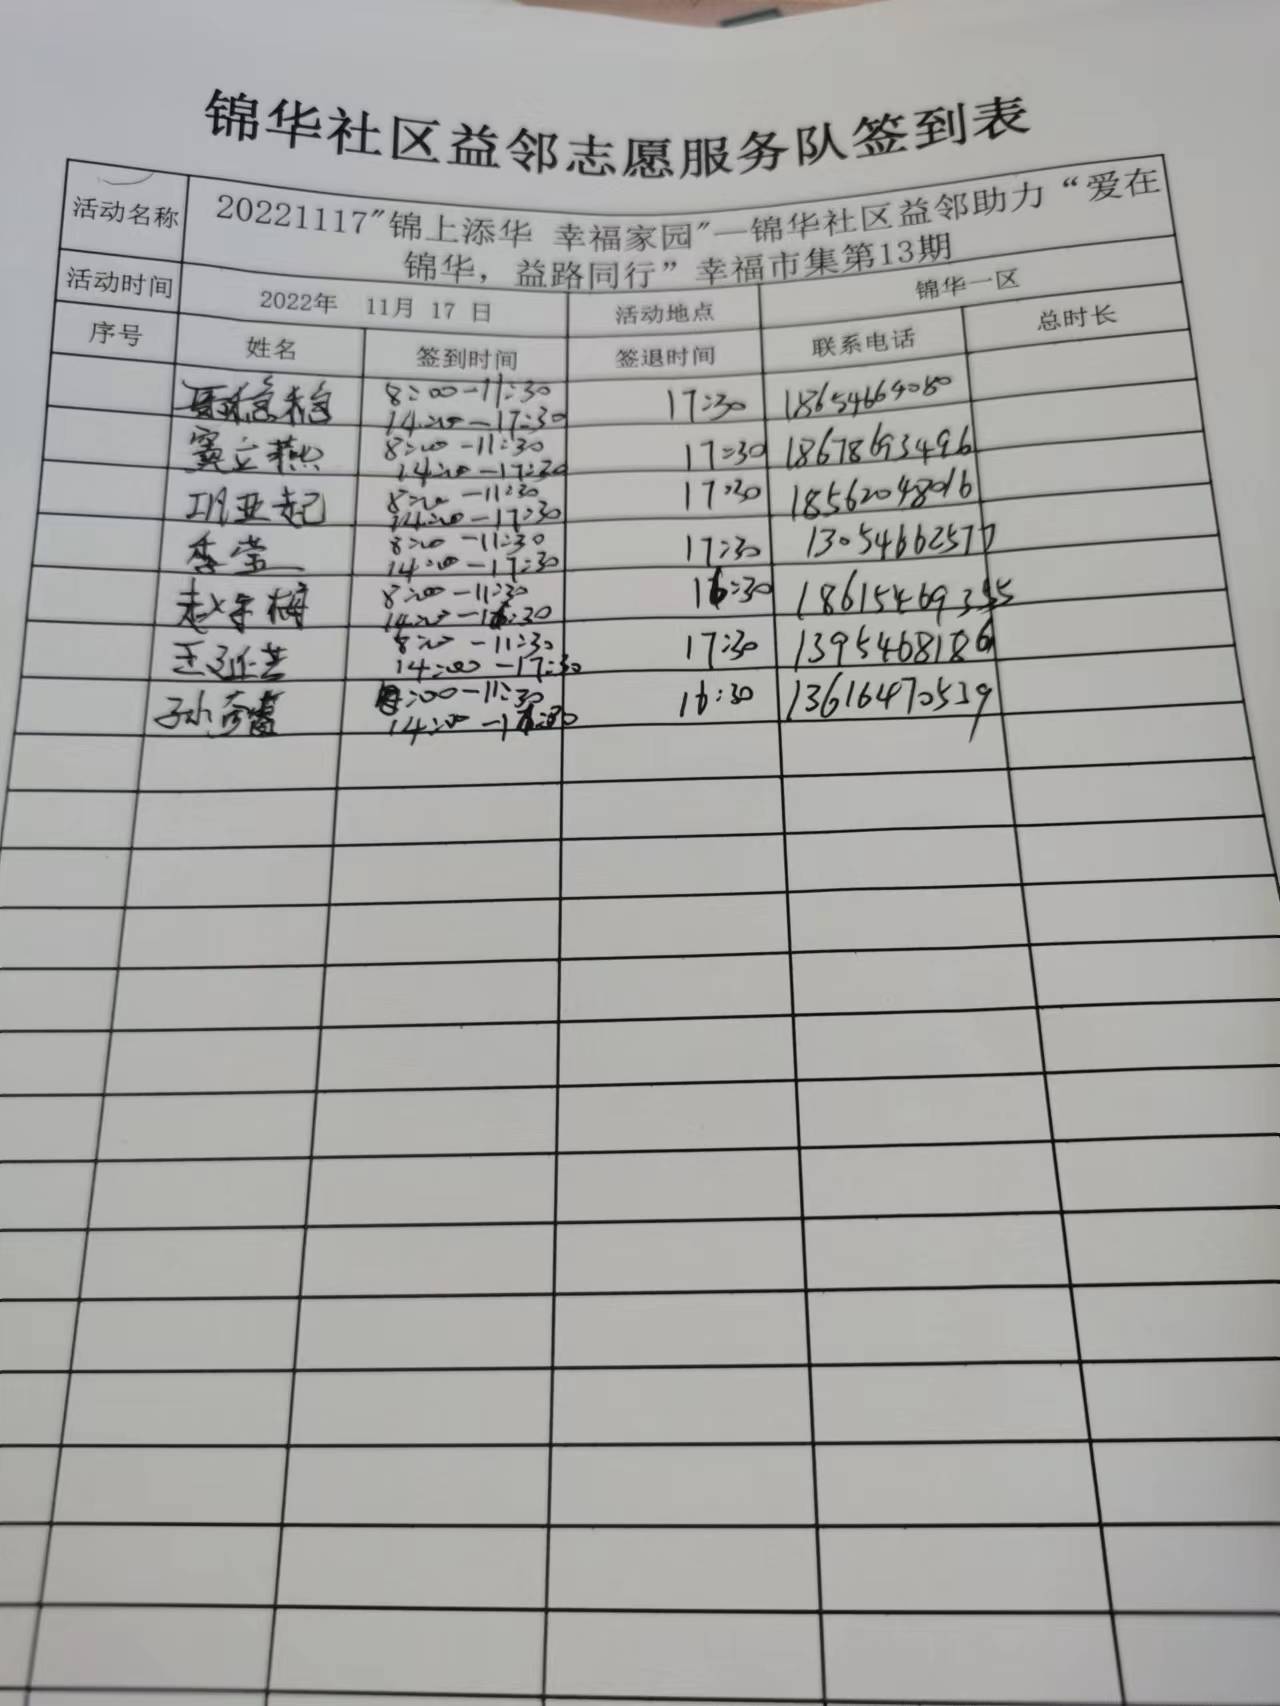 锦华社区益邻志愿服务队签到表
活动名称 20221117"锦上添华 幸福家园"—锦华社区益邻助力“爱在
锦华，益路同行”幸福市集第13期
活动时间 2022年 11月 17 日 活动地点 锦华一区
序号 姓名 签到时间 签退时间 联系电话 总时长
8:00-11:30
14:00-17:30 17:30 18654664080
8:00-11:30
14:00-17:30 17:30 18678693496
巩亚起 8:00-11:30
14:00-17:30 17:30 18562048016
李莹 8:00-11:30
14:00-17:30 17:30 13054662577
赵冬梅 8:00-11:30
14:00-16:30 16:30
王延芸 8:00-11:30
14:00-17:30 17:30 1395468186
8:00-11:30
14:00-16:30 16:30 13616470539